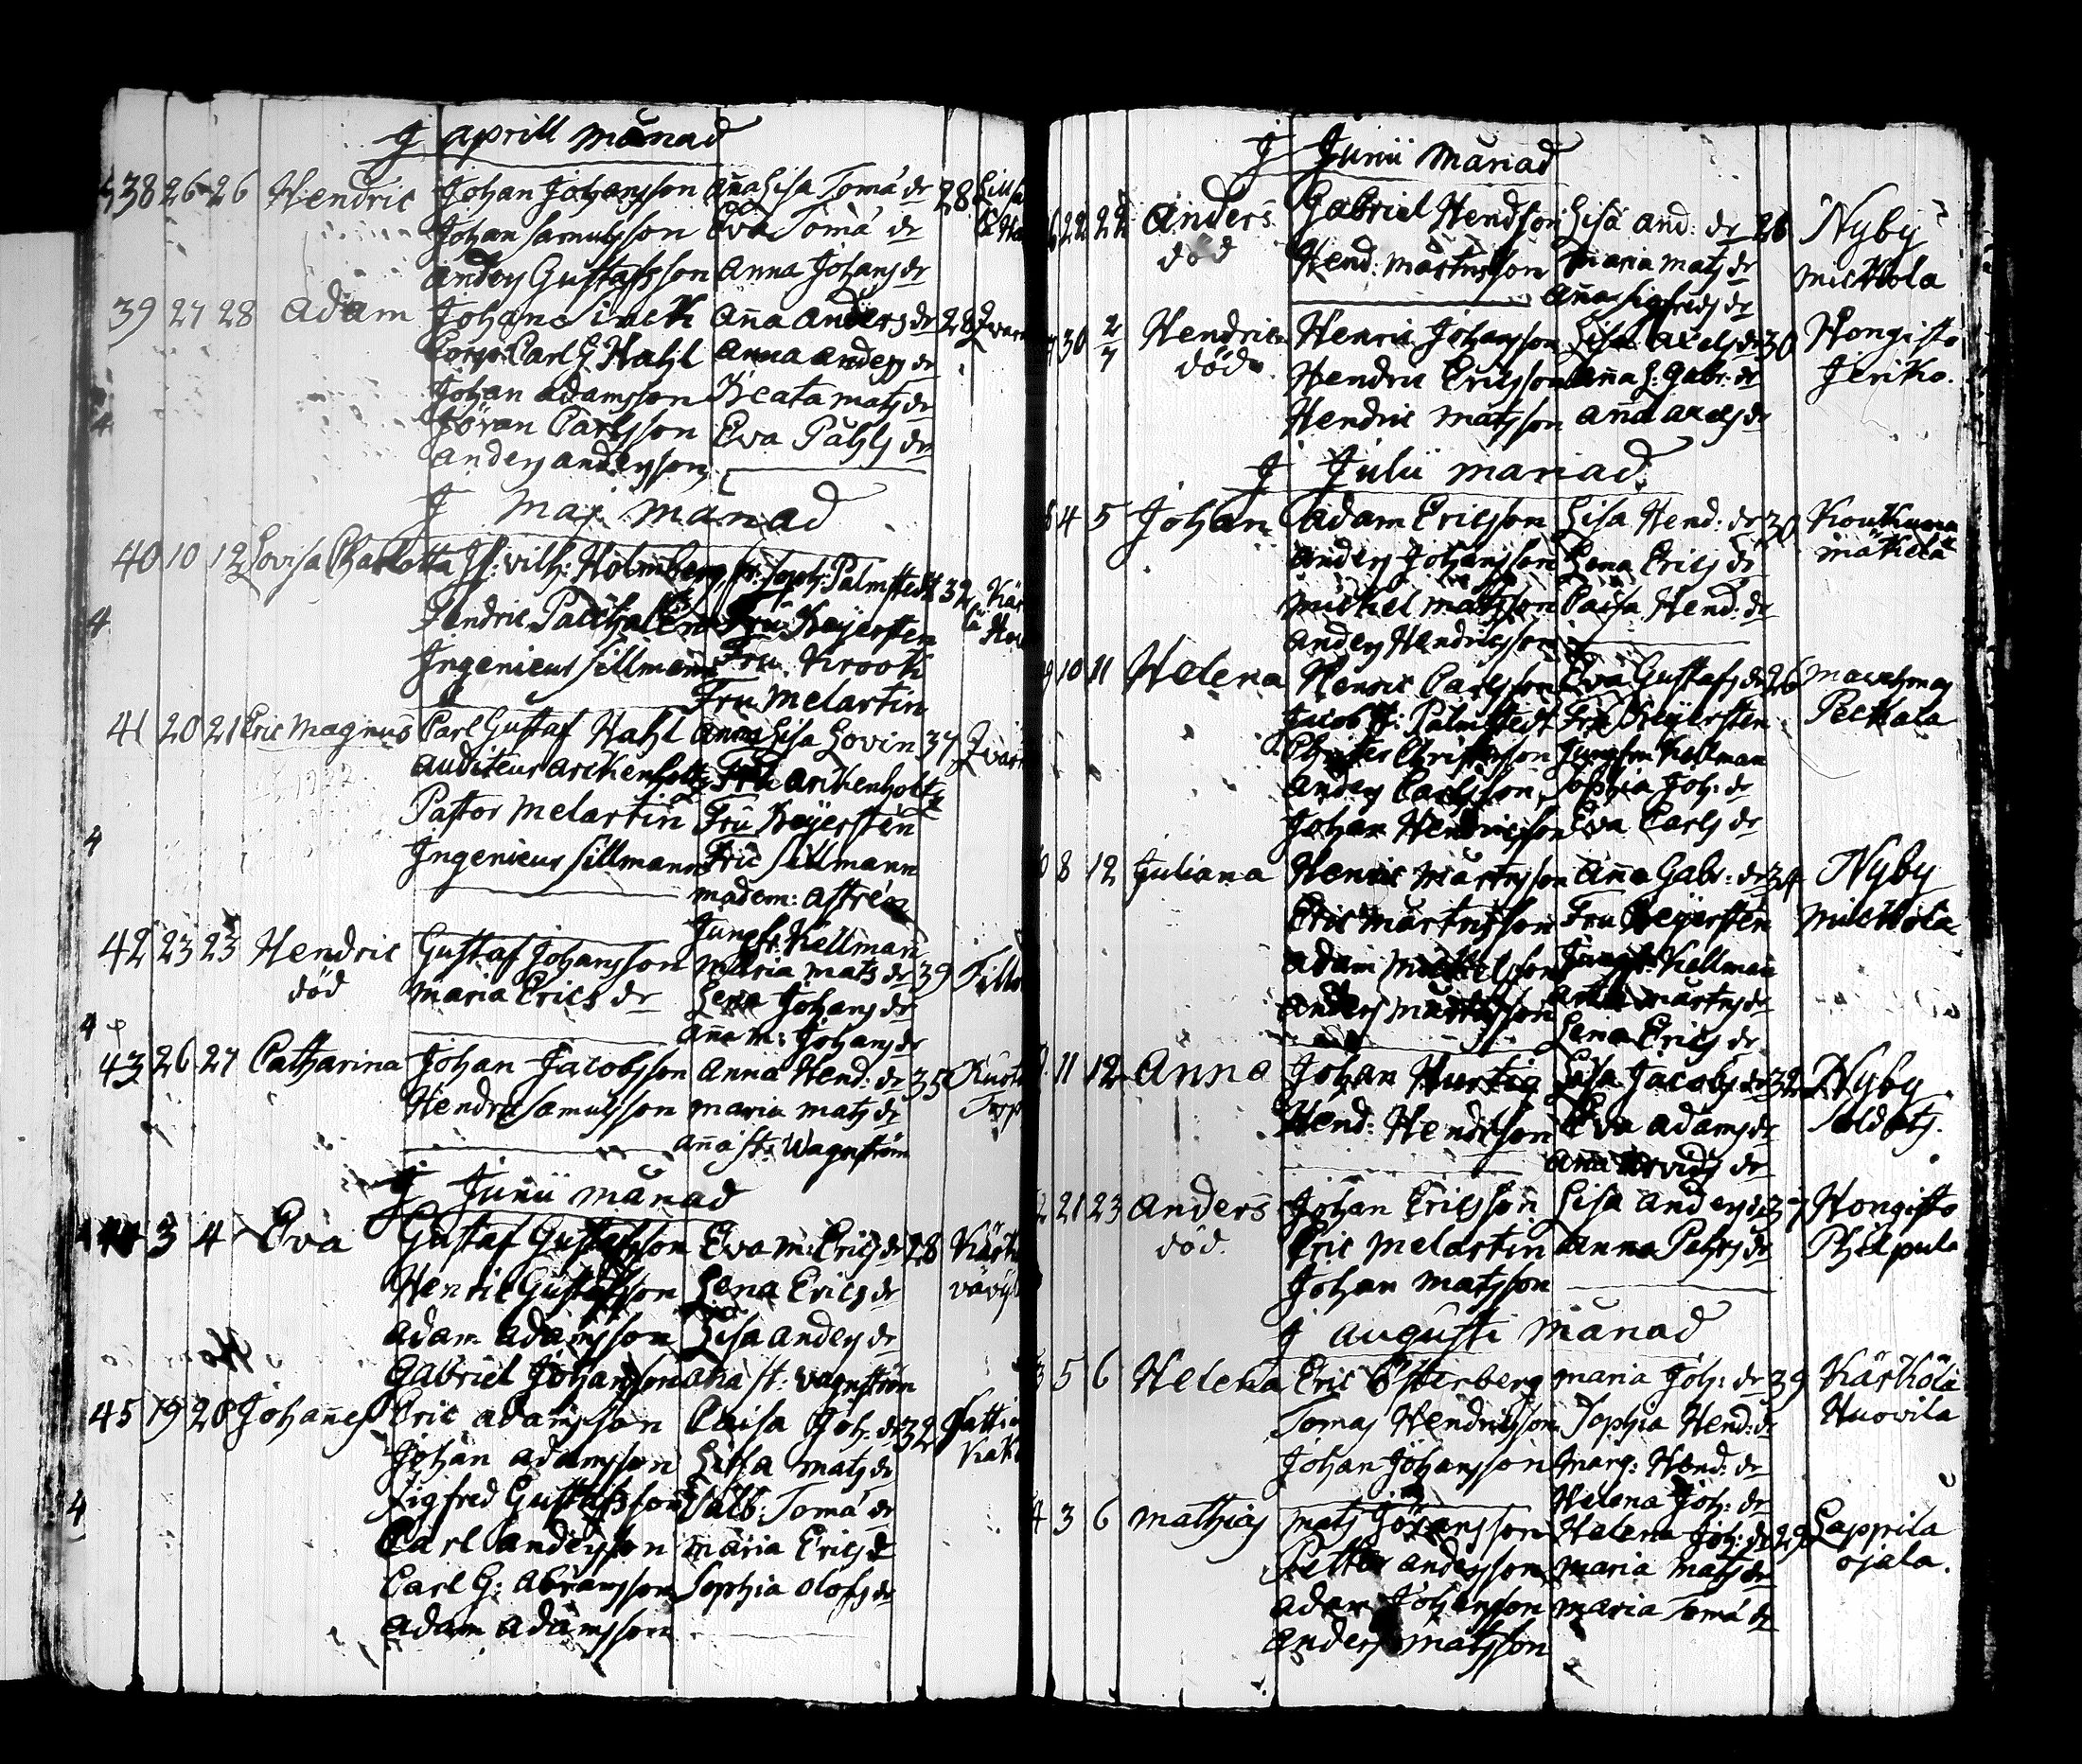 J aprill månad
38 26 26 Hendric Johan Johansson Aña Lisa Tomæ dr 28
Johan Samuelsson Eva Tomæ dr
Anders Gustafsson Anna Johans dr
39 27 28 Adam Johan Aña Anders dr 28
Corpr: Carl G. Hahl Anna Anders dr
Johan Adamsson Beata Mats dr
Jöran Carlsson Eva Påhls dr
Anders Andersson
J Maj månad
40 10 12 Lovisa Charlotta Hr: Vilh: Holmberg fr: Soph: Palmstedt 32
Hendric Fru Reijersten
Ingenieur Sillmann Fru Krook
Fru Melartin
41 20 21 Eric Magnus Carl Gustaf Hahl Anna Lisa Lovin 37
Auditeur Arckenholtz Fru Arckenholtz
Pastor Melartin Fru Reijersten
Ingenieur Sillmann Sillmann
Madem: Astrén
Jungfr. Kellman
42 23 23 Hendric Gustaf Johansson Maria Mats dr 39
död Maria Erics dr Lena Johans dr
Aña M: Johans dr
43 26 27 Catharina Johan Jacobsson Anna Hend: dr 35
Hendric Samulsson Maria Mats dr
Aña St: Wagnström
J Junii månad
44 3 4 Eva Gustaf Gustafsson Eva M: Erics dr 28
Henric Gustafsson Lena Erics dr
Adam Adamsson Lisa Anders dr
Gabriel Johansson Aña St: Vagnström
45 19 20 Johannes Eric Adamsson Caisa Joh: dr 32
Johan Adamsson Lisa Mats dr
Sigfred Gustafsson Valb: Tomæ dr
Carl Andersson Maria Erics dr
Carl G: Abramsson Sophia Olofs dr
Adam Adamsson
J Junii månad
22 22 Anders Gabriel Hendsson Lisa And: dr 26 Nyby
död Hend: Mårtensson Maria Mats dr Mickola
Aña Sigfreds dr
30 2/7 Hendric Henric Johansson Lisa Axels dr 30 Hongisto
död Hendric Ericsson Aña L: Gabr: dr Jeriko.
Hendric Matsson Aña Axels dr
J Julii månad
4 5 Johan Adam Ericsson Lisa Hend: dr 30 Koukunna
Anders Johansson Lena Erics dr Mäkelä
Mickel Matsson Caisa Hend: dr
Anders Hendricsson
9 10 11 Helena Henric Carlsson Eva Gustafs dr 26
Jacob H: Palmstedt Fru Reijersten Peckala
Christer Christersson Jungfru Kellman
Anders Carlsson Sophia Joh: dr
Johan Hendricsson Eva Carls dr
8 12 Juliana Henric Mårtensson Aña Gabr: dr 34 Nyby
Eric Mårtensson Fru Reijersten Mickola
Adam Mickelsson Jungfr: Kellman
Anders Mårtensson Mårtens dr
Lena Erics dr
11 12 Anna Johan Hurtig Lisa Jacobs dr 32 Nyby
Hend: Hendricsson Eva Adams dr
Aña Arvids dr
2 21 23 Anders Johan Ericsson Lisa Anders dr 37 Hongisto
död. Eric Melartin Anna Pehrs dr
Johan Matsson
J Augusti månad
3 5 6 Helena Eric Österberg Maria Joh: dr 39 Kärkölä
Tomas Hendricsson Sophia Hend: dr Huovila
Johan Johansson Marg: Hend: dr
Helena Joh: dr
4 3 6 Mathias Mats Göransson Helena Joh: dr 29 Lappila
Petter Andersson Maria Mats dr Ojala.
Adam Johansson Maria Tomæ dr
Anders Matsson